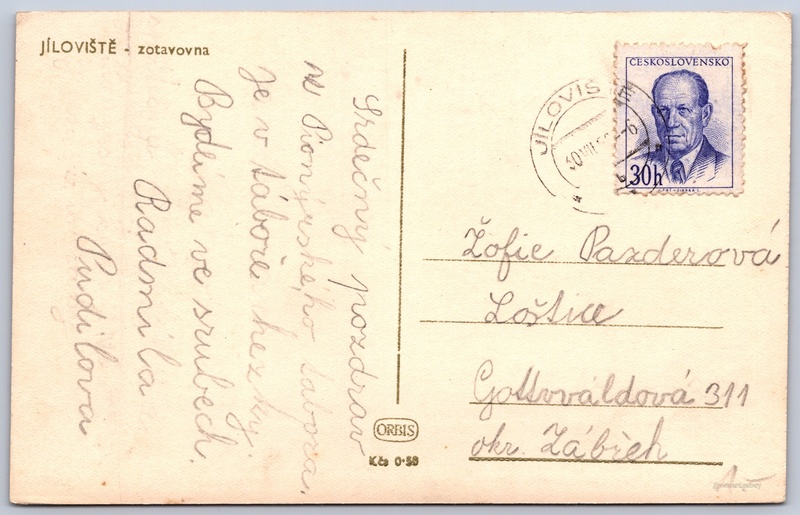 JÍLOVIŠTĚ - zotavovna
Srdečný pozdrav
Pionýrského tábora.
Je v táboře hezky.
Bydlíme ve srubech.
Radmila
Pudilová
JÍLOVIŠTĚ
ČESKOSLOVENSKO
30h
Žofie Pazderová
Loštice
Gottwaldová 311
okr. Zábřeh
ORBIS
Kčs 0·50